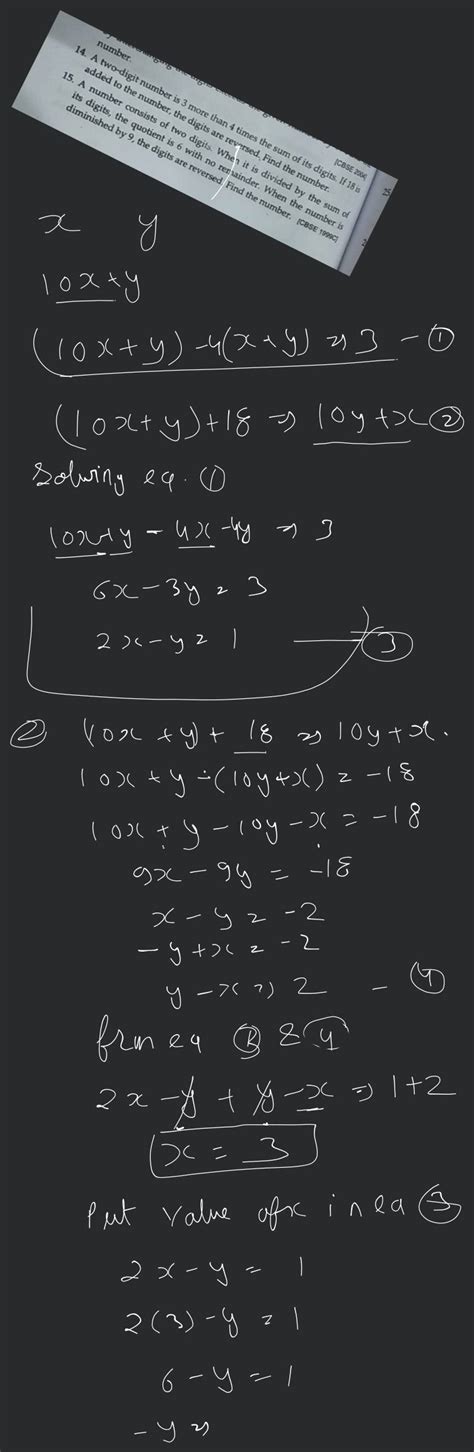 number.
14. A two-digit number is 3 more than 4 times the sum of its digits. If 18 is
added to the number, the digits are reversed. Find the number. [CBSE
15. A number consists of two digits. When it is divided by the sum of
its digits, the quotient is 6 with no remainder. When the number is
diminished by 9, the digits are reversed. Find the number. [CBSE 1999C]
x y
10x+y
(10x+y)-4(x+y) ⇒ 3 - ①
(10x+y)+18 ⇒ 10y+x ②
Solving eq. ①
10x+y - 4x-4y ⇒ 3
6x-3y = 3
2x-y = 1 ③
② (10x+y)+ 18 ⇒ 10y+x.
10x+y-(10y+x) = -18
10x+y-10y-x = -18
9x-9y = -18
x-y = -2
-y+x = -2
y-x ⇒ 2 - ④
from eq ③ & ④
2x-y + y-x ⇒ 1+2
x = 3
Put value of x in eq ③
2x-y = 1
2(3)-y = 1
6-y = 1
-y ⇒